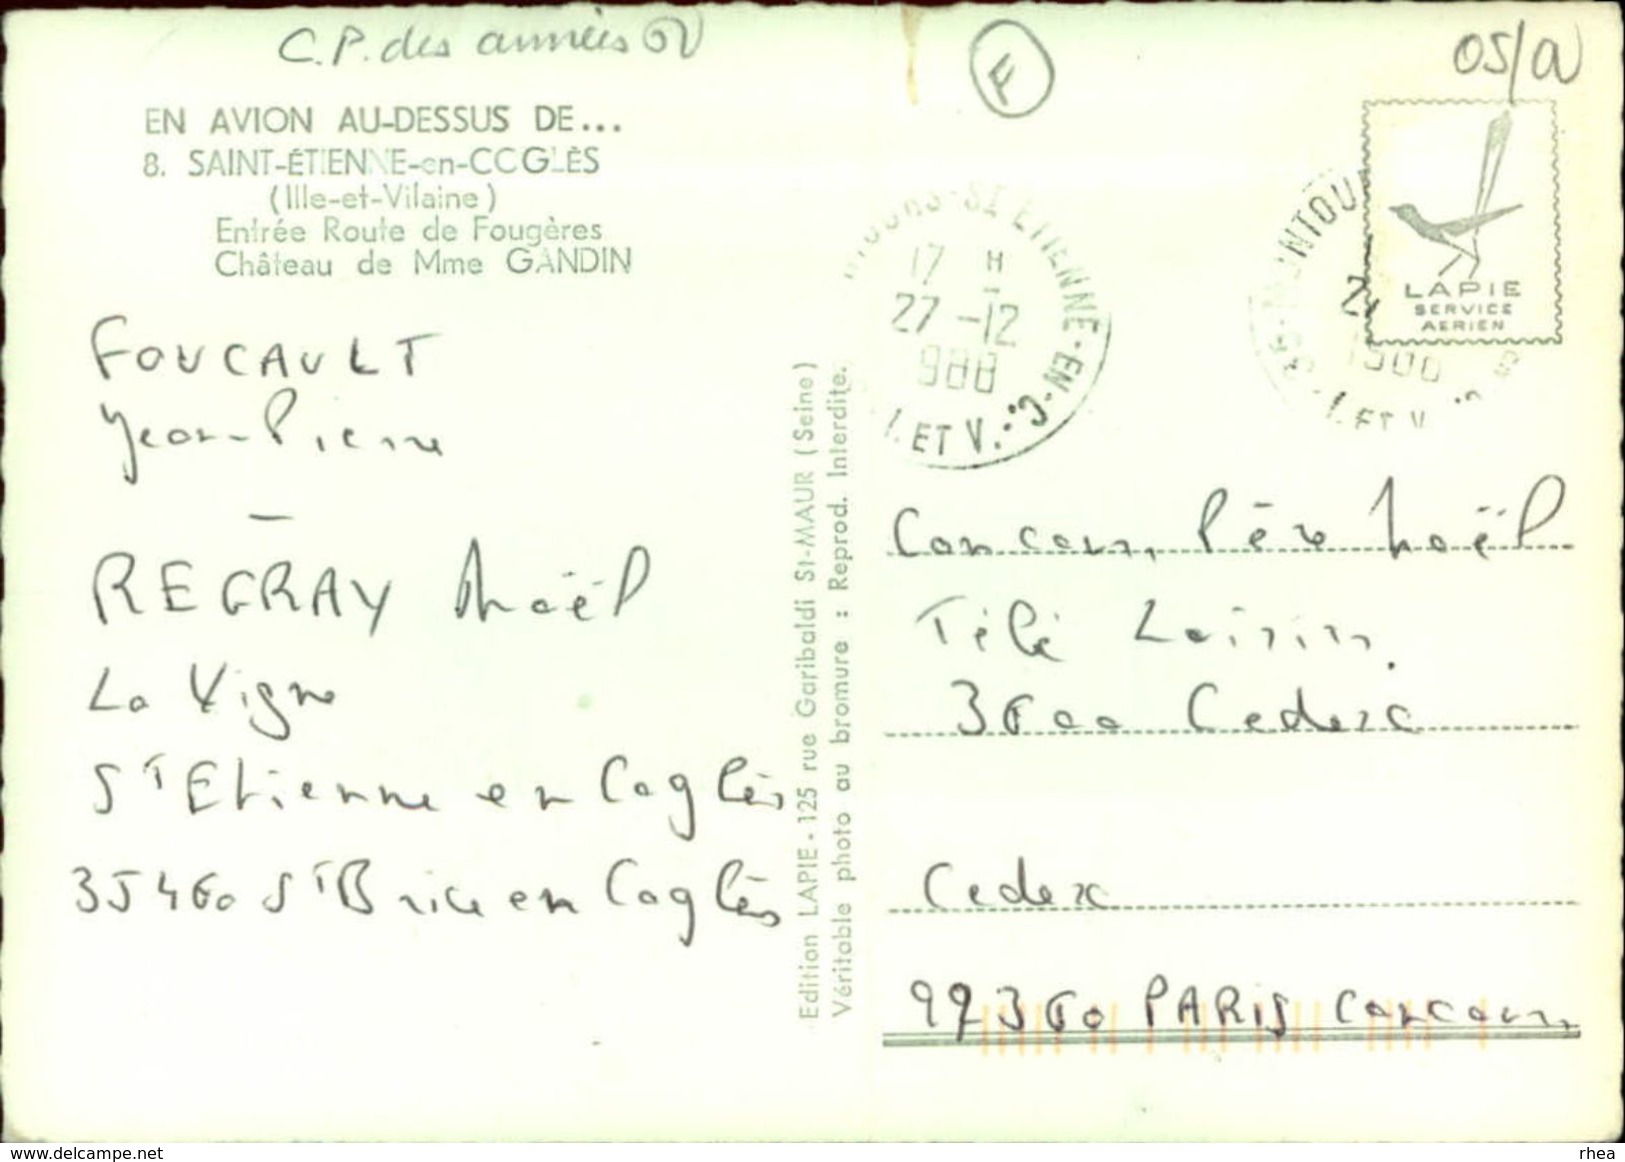 C.P. des années 60
F
05/a
EN AVION AU-DESSUS DE...
8. SAINT-ÉTIENNE-en-COGLÈS
(Ille-et-Vilaine)
Entrée Route de Fougères
Château de Mme GANDIN
FOUCAULT
Jean-Pierre
—
REGRAY Noël
La Vigne
St Etienne en Coglès
35460 St Brice en Coglès
Edition LAPIE - 125 rue Garibaldi St-MAUR (Seine)
Véritable photo au bromure : Reprod. Interdite.
ST ETIENNE-EN-C.
17 H
27-12
1988
I. ET V.
35-MONTOU
1988
I. ET V.
LAPIE
SERVICE
AERIEN
Concours Père Noël
Télé Loisirs.
3600 Cedex
Cedex
99360 PARIS Concours
www.delcampe.net
rhea